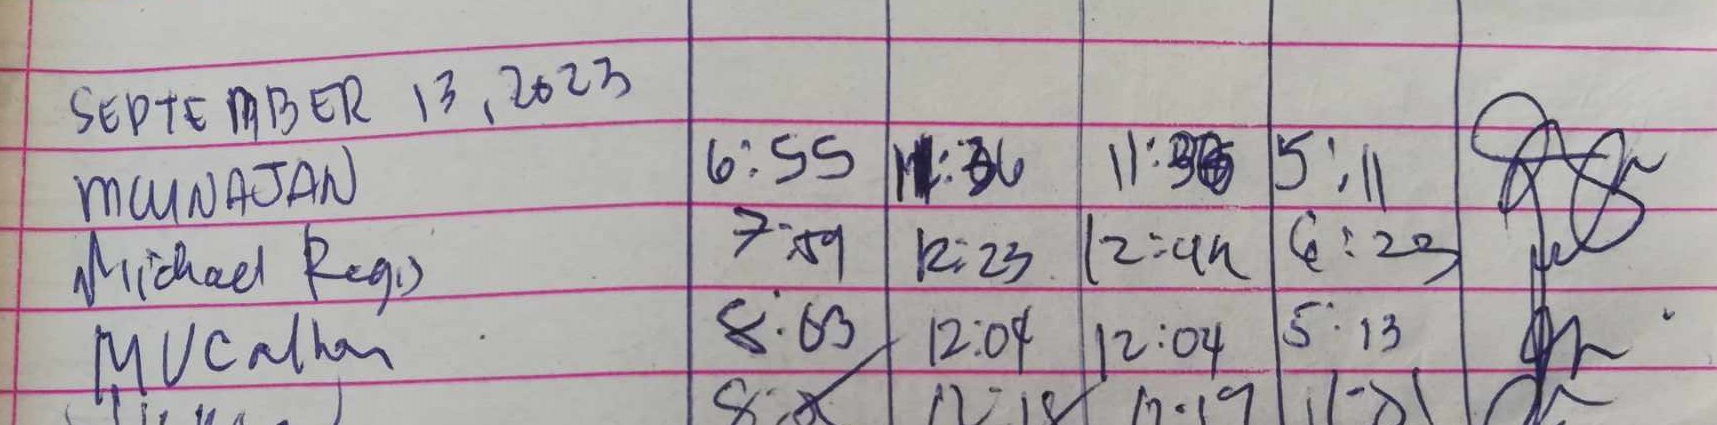 SEPTEMBER 13, 2023
MUNAJAN 6:55 11:36 11:36 5:11
Michael Regis 7:59 12:23 12:44 6:23
MVCalhan 8:03 12:04 12:04 5:13
12:18 12:19